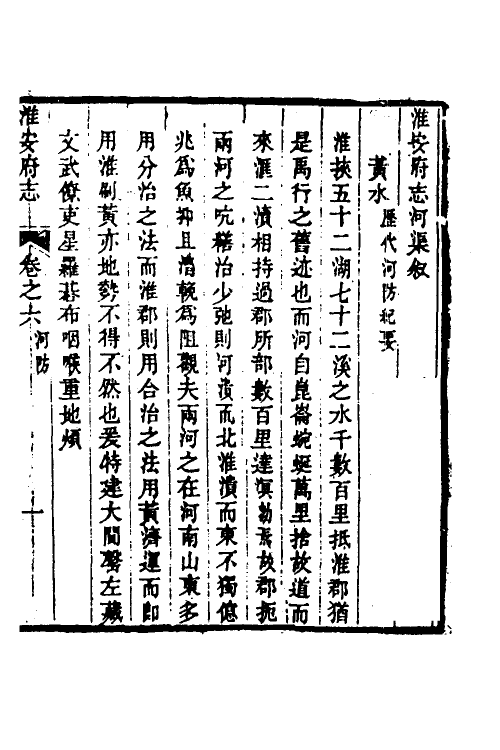 淮安府志河渠叙
黃水 歷代河防紀要
淮挾五十二湖七十二溪之水千數百里抵淮郡猶
是禹行之舊迹也而河自崑崙蜿蜒萬里捨故道而
來滙二瀆相持過郡所部數百里達溟勃焉故郡扼
兩河之吭稽治少弛則河潰而北淮潰而東不獨億
兆爲魚抑且漕輓爲阻觀夫兩河之在河南山東多
用分治之法而淮郡則用合治之法用黃濟運而即
用淮刷黃亦地勢不得不然也爰特建大閫罄左藏
文武僚吏星羅碁布咽喉重地煩
淮安府志 卷之六 河防 一